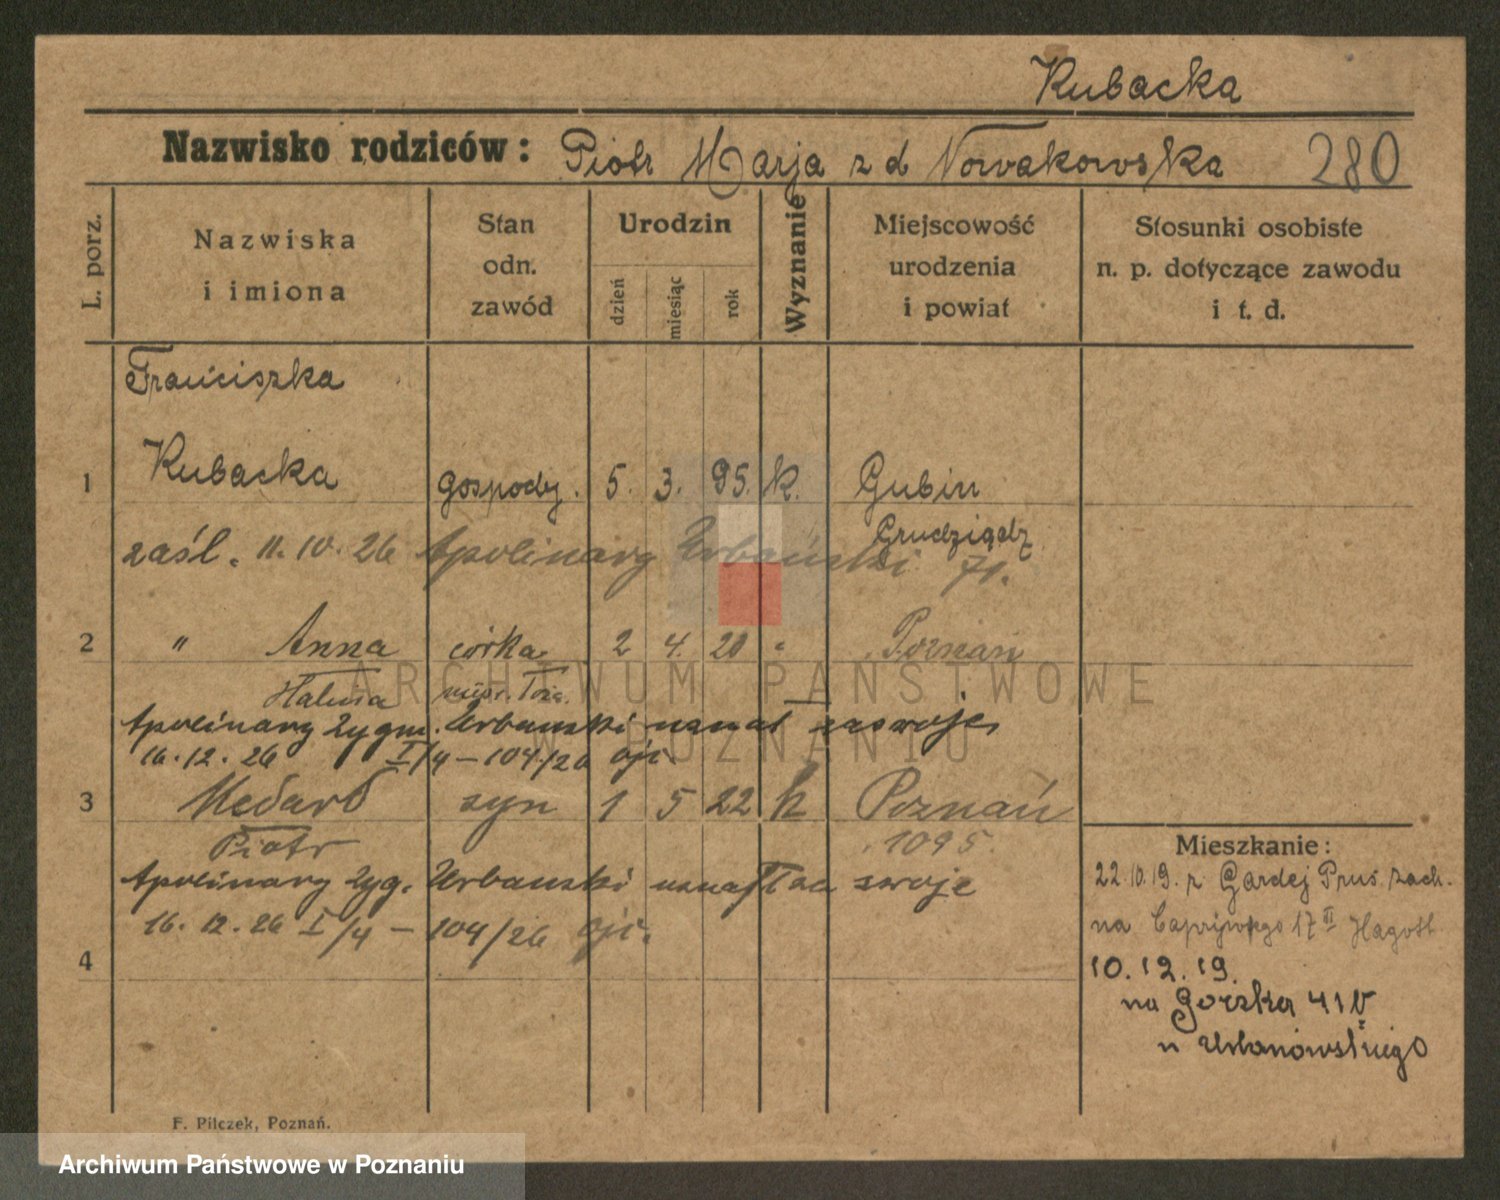 Kubacka
Nazwisko rodziców: Piotr Marja z d Nowakowska 280
L. porz.
Nazwiska i imiona
Stan odn. zawód
Urodzin
dzień miesiąc rok
Wyznanie
Miejscowość urodzenia i powiat
Stosunki osobiste n. p. dotyczące zawodu i t. d.
Franciszka
1 Kubacka gospody. 5. 3. 95. k. Gubin
Grudziądz
zaśl. 11.10.26 Apolinary Urbański
2 " Anna córka 2 4. 20 " Poznań
Halina
Apolinary Zygm. Urbanski uznał za swoje
16.12.26 I/4 – 104/26 ojc.
3 Medard syn 1 5 22 k Poznań
Piotr 1095.
Apolinary Zyg. Urbanski uznał za swoje
16.12.26 I/4 – 104/26 ojc.
4
Mieszkanie:
22.10.19. z Gardej Prus. zach.
na 17 III
10.12.19.
na Górska 41
u
F. Pilczek, Poznań.
ARCHIWUM PAŃSTWOWE
W POZNANIU
Archiwum Państwowe w Poznaniu